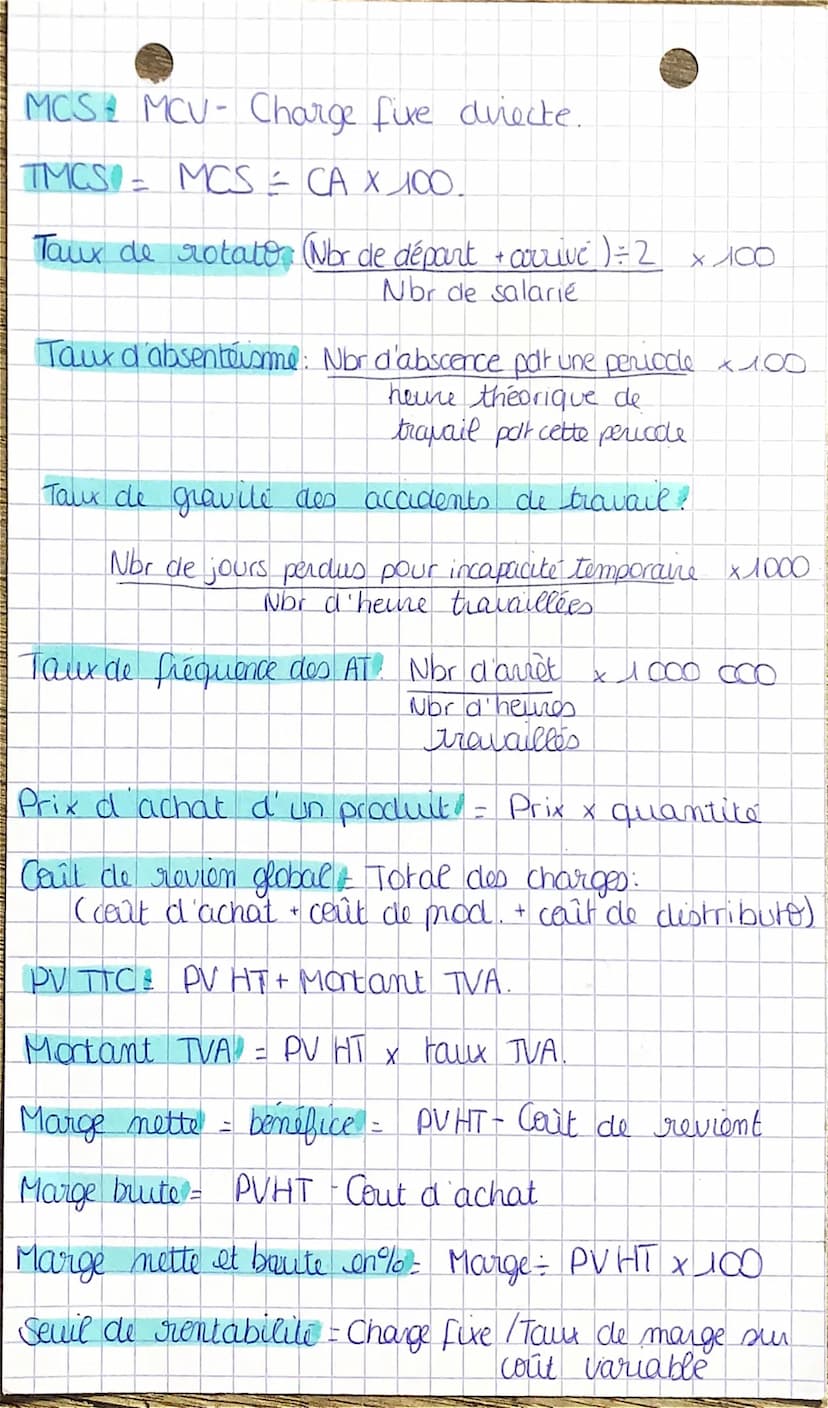 MCS : MCV - Charge fixe directe.
TMCS = MCS ÷ CA x 100.
Taux de rotato : (Nbr de départ + arrivé) ÷ 2 x 100
Nbr de salarié
Taux d'absentéisme : Nbr d'abscence pdt une periode x 100
heure théorique de
travail pdt cette periode
Taux de gravité des accidents de travail :
Nbr de jours perdus pour incapacité temporaire x 1000
Nbr d'heure travaillées
Taux de fréquence des AT : Nbr d'arrêt x 1 000 000
Nbr d'heures
travaillés
Prix d'achat d'un produit = Prix x quantité
Coût de revien global = Total des charges :
(coût d'achat + coût de prod. + coût de distributo)
PV TTC : PV HT + Montant TVA.
Montant TVA = PV HT x taux TVA.
Marge nette = bénéfice = PVHT - Coût de revient
Marge brute = PVHT - Cout d'achat
Marge nette et brute en % = Marge ÷ PVHT x 100
Seuil de rentabilité = Charge fixe / Taux de marge sur
coût variable